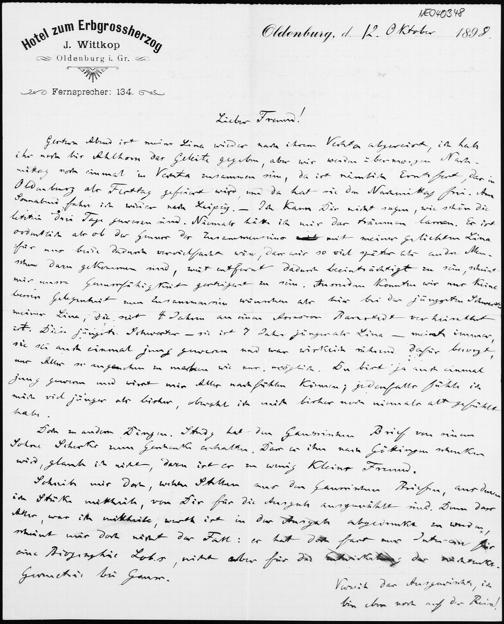 NEO40348
Hotel zum Erbgrossherzog
J. Wittkop
Oldenburg i. Gr.
Fernsprecher: 134.
Oldenburg, d. 12. Oktober 1898
Lieber Freund!
Gestern Abend ist meine Lina wieder nach ihrem Vechta abgereist, ich hab
ihr noch bis Ahlhorn das Geleite gegeben, aber wir werden übermorgen Nach-
mittag noch einmal in Vechta zusammen sein, da ist nämlich Erntefest, das in
Oldenburg als Festtag gefeiert wird und da hat sie den Nachmittag frei. Am
Sonnabend fahre ich wieder nach Leipzig. — Ich kann Dir nicht sagen, wie schön die
letzten drei Tage gewesen sind. Niemals hätte ich mir das träumen lassen. Es ist
ordentlich als ob der Genuss des Zusammenseins mit meiner geliebten Lina
für uns beide dadurch vervielfacht wäre, dass wir so viel später als andre Men-
schen dazu gekommen sind, weit entfernt dadurch beeinträchtigt zu sein, scheint
mir unsre Genussfähigkeit gesteigert zu sein. Ausserdem konnten wir uns keine
bessere Gelegenheit zum Zusammensein wünschen als hier bei der jüngsten Schwester
meiner Lina, die seit 4 Jahren an einen Assessor verheirathet
ist. Diese jüngste Schwester — sie ist 7 Jahre jünger als Lina — meinte immer,
sie sei auch einmal jung gewesen und war wirklich rührend dafür besorgt,
uns Alles so angenehm zu machen wie nur möglich. Du bist ja auch einmal
jung gewesen und wirst mir Alles nachfühlen können; jedenfalls fühle ich
mich viel jünger als bisher, obwohl ich mich bisher noch niemals alt gefühlt
habe.
Doch zu andern Dingen. Study hat den Gaussischen Brief von einem
Sohne Scherks zum Geschenke erhalten. Dass er ihn nach Göttingen schenken
wird, glaube ich nicht, dazu ist er zu wenig Kleins Freund.
Schreib mir doch, welche Stellen aus den Gaussischen Briefen, aus denen
ich Stücke mittheilte, von Dir für die Ausgabe ausgewählt sind. Denn dass
Alles, was ich mittheilte, werth ist in der Ausgabe abgedruckt zu werden,
scheint mir doch nicht der Fall: es hat das fast nur Interesse für
eine Biographie Lobs, nicht aber für die Entwickelung der nichteukl.
Geometrie bei Gauss.
Verzeih das Ausgewischte, ich
bin eben noch auf der Reise!